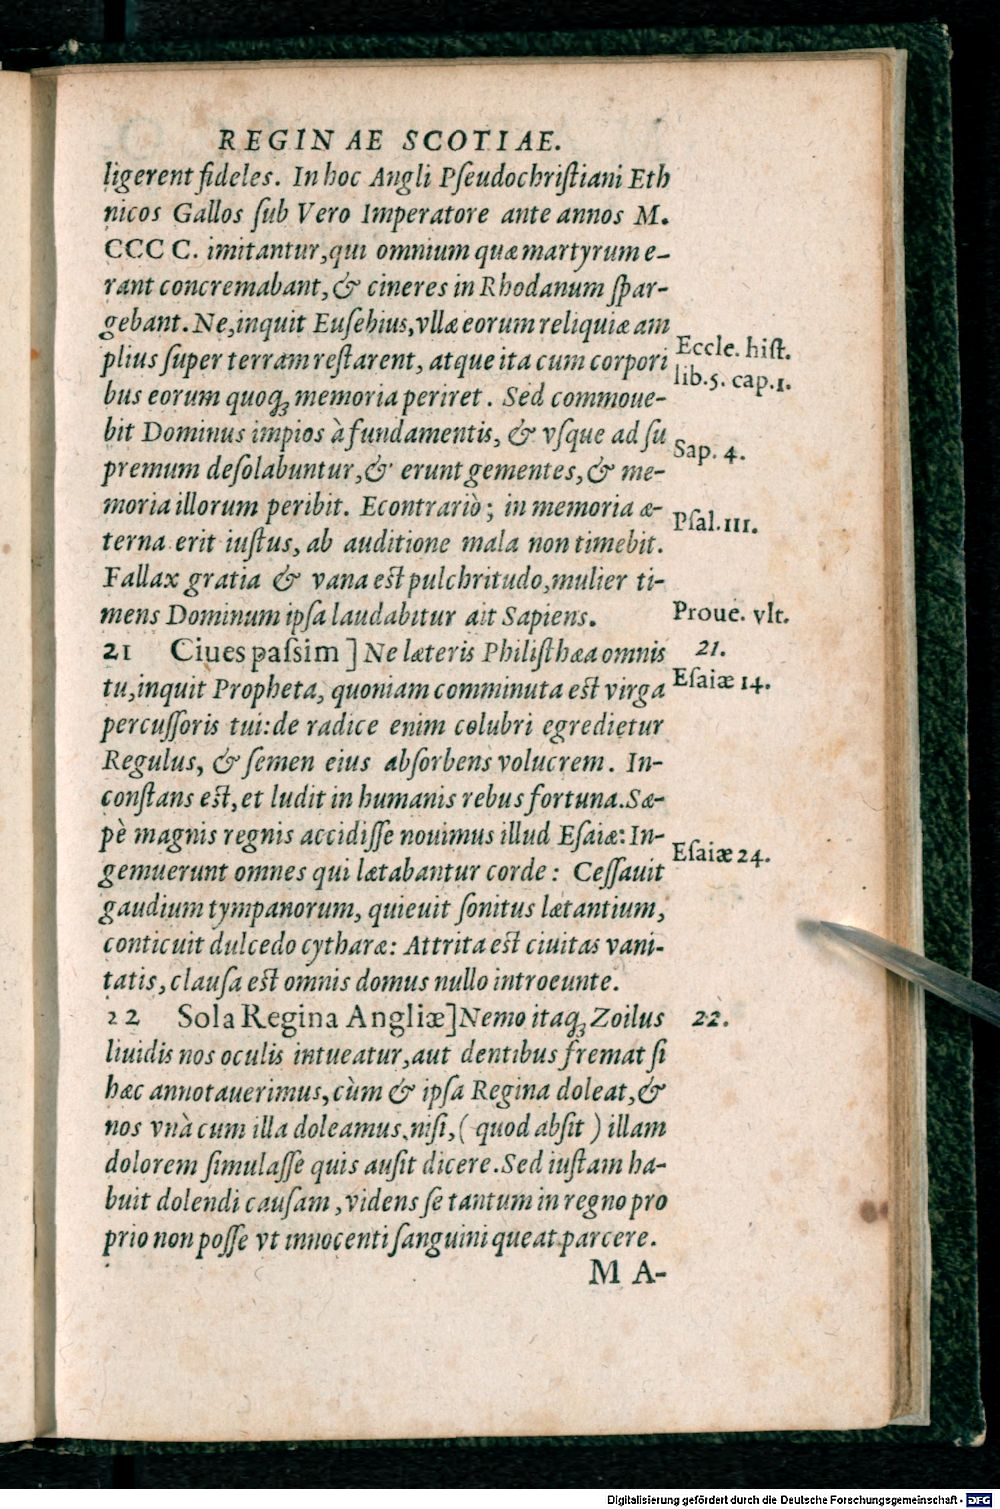 REGINAE SCOTIAE.
ligerent fideles. In hoc Angli Pſeudochriſtiani Eth
nicos Gallos ſub Vero Imperatore ante annos M.
CCC C. imitantur, qui omnium quæ martyrum e-
rant concremabant, & cineres in Rhodanum ſpar-
gebant. Ne, inquit Euſebius, vllæ eorum reliquiæ am
plius ſuper terram reſtarent, atque ita cum corpori
Eccle. hiſt.
lib.5. cap.1.
bus eorum quoqꝫ memoria periret. Sed commoue-
bit Dominus impios à fundamentis, & vſque ad ſu
Sap. 4.
premum deſolabuntur, & erunt gementes, & me-
moria illorum peribit. Econtrariò; in memoria æ-
Pſal.111.
terna erit iuſtus, ab auditione mala non timebit.
Fallax gratia & vana eſt pulchritudo, mulier ti-
mens Dominum ipſa laudabitur ait Sapiens.
Proue. vlt.
21 Ciues paſsim] Ne læteris Philiſthæa omnis
21.
tu, inquit Propheta, quoniam comminuta eſt virga
Eſaiæ 14.
percuſſoris tui: de radice enim colubri egredietur
Regulus, & ſemen eius abſorbens volucrem. In-
conſtans eſt, et ludit in humanis rebus fortuna. Sæ-
pè magnis regnis accidiſſe nouimus illud Eſaiæ: In-
gemuerunt omnes qui lætabantur corde: Ceſſauit
Eſaiæ 24.
gaudium tympanorum, quieuit ſonitus lætantium,
conticuit dulcedo cytharæ: Attrita eſt ciuitas vani-
tatis, clauſa eſt omnis domus nullo introeunte.
22 Sola Regina Angliæ] Nemo itaqꝫ Zoilus
22.
liuidis nos oculis intueatur, aut dentibus fremat ſi
hæc annotauerimus, cùm & ipſa Regina doleat, &
nos vnà cum illa doleamus, niſi, (quod abſit) illam
dolorem ſimulaſſe quis auſit dicere. Sed iuſtam ha-
buit dolendi cauſam, videns ſe tantum in regno pro
prio non poſſe vt innocenti ſanguini queat parcere.
M A-
Digitalisierung gefördert durch die Deutsche Forschungsgemeinschaft - DFG